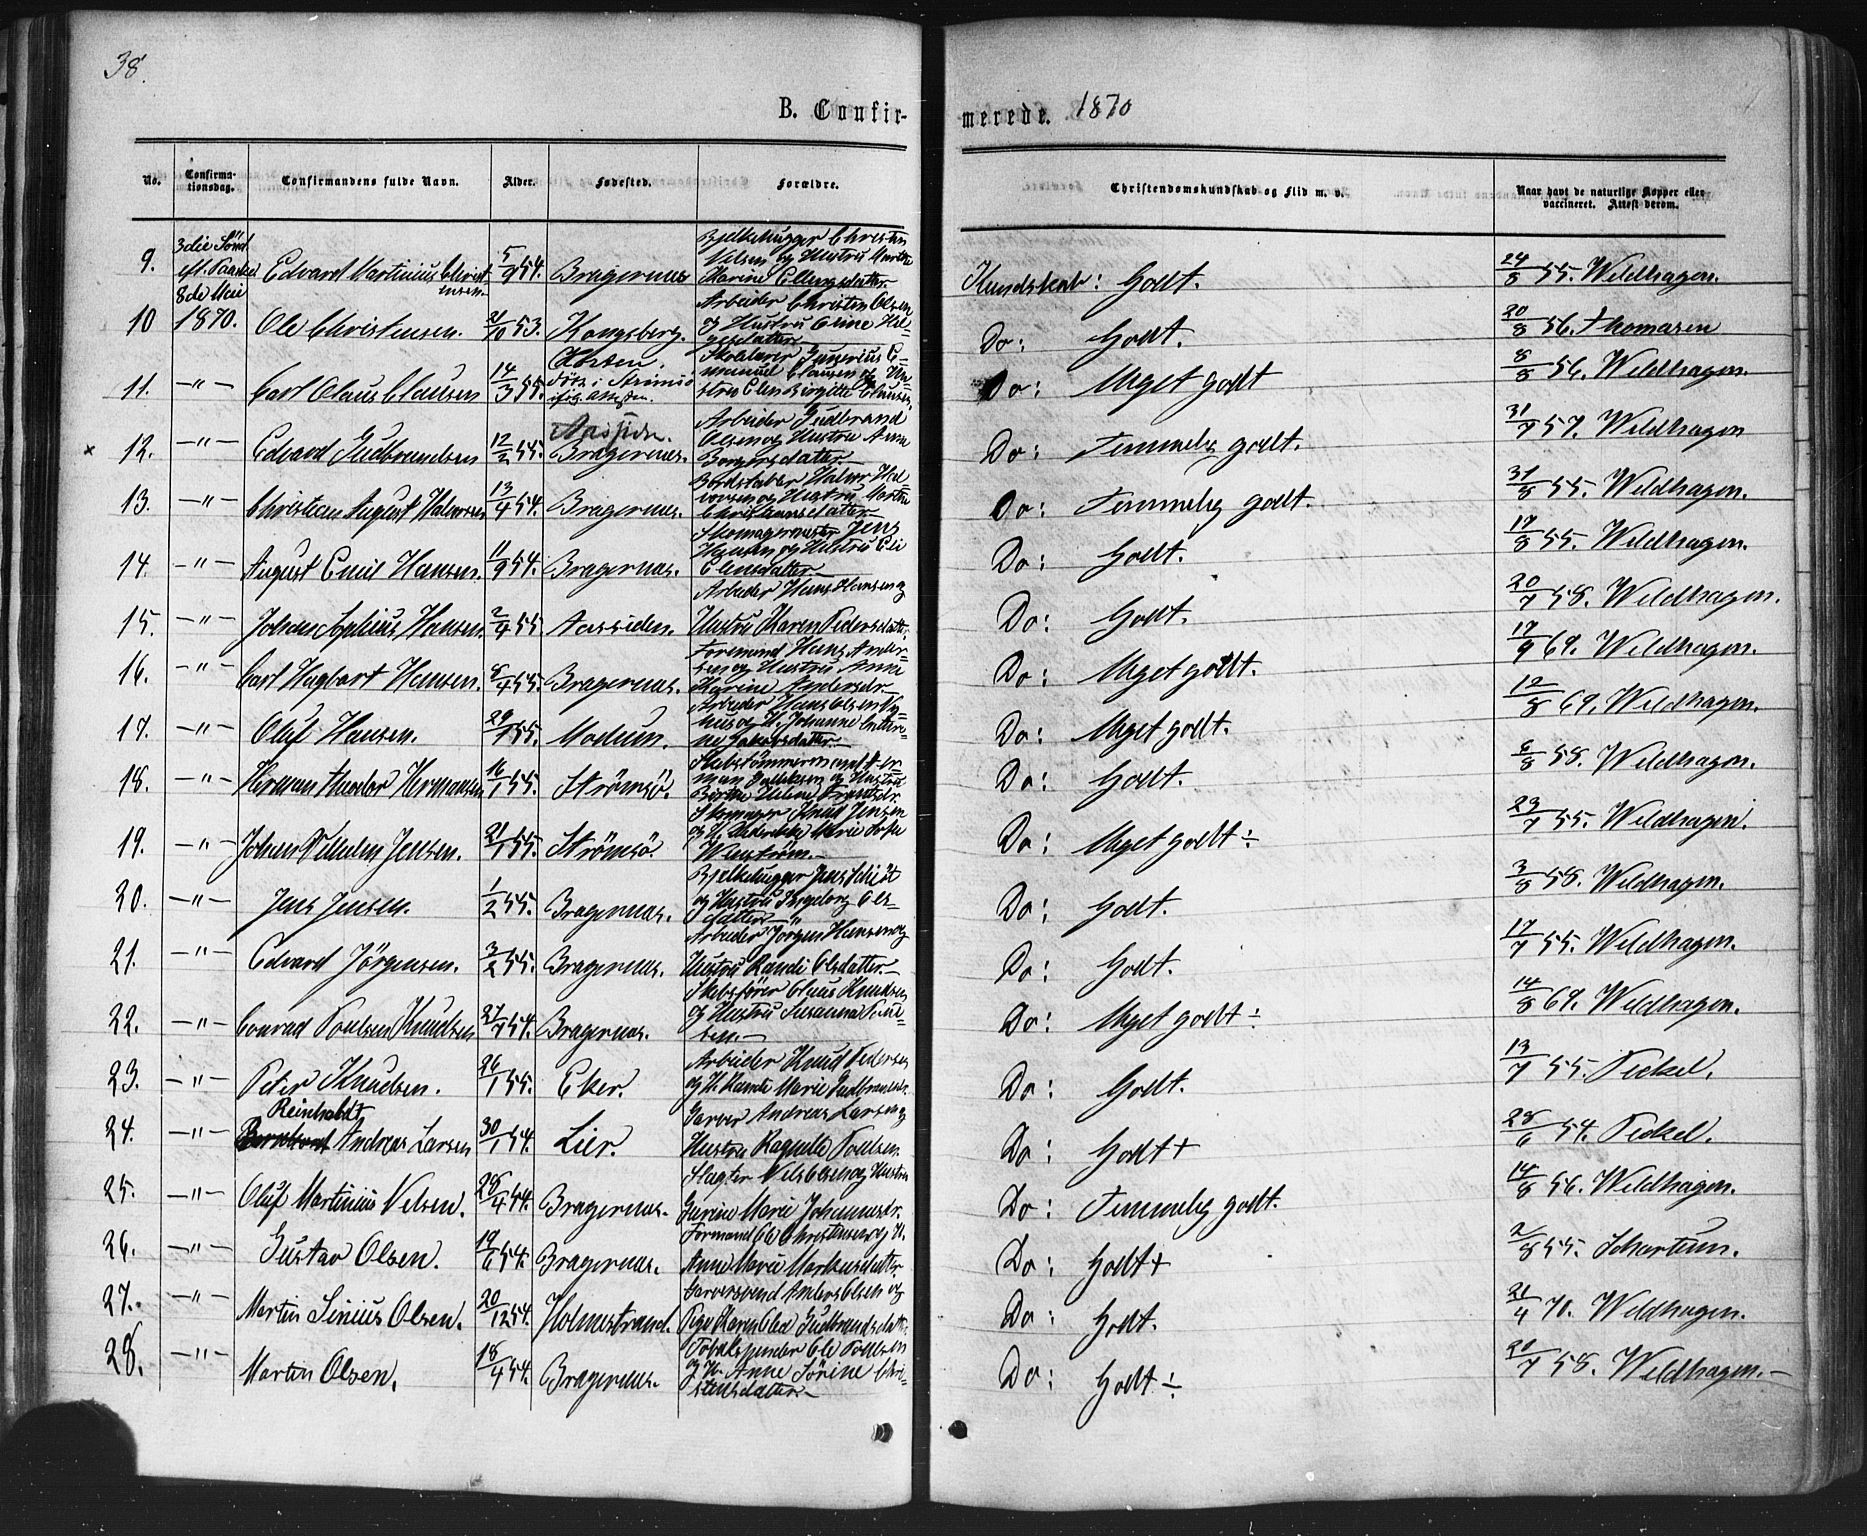 38.
B. Confir-
merede. 1870
No.
Confirma-
tionsdag.
Confirmandens fulde Navn.
Alder.
Fødested.
Forældre.
Christendomskundskab og Flid m. v.
Naar havt de naturlige Kopper eller
vaccineret. Attest derom.
9. 3die Sönd. eft. Paaske 8de Mai Edvard Martinius Christensen 5/9 54. Bragernæs Bjelkehugger Christen Nilsen og Hustru Marthe Marine Ellingsdatter Kundskab: Godt. 24/8 55. Wildhagen.
10 1870. Ole Christensen. /10 53. Kongsberg. Arbeider Christen Olsen og Hustru Eline Helgesdatter Do: Godt. 20/8 56. Thomasen
11. —"— Carl Olaus Clausen 14/3 55. ifølg. Attesten. Skolelærer Emanuel Clausen og Hustru Elen Birgitte Clausen Do: Meget godt 8/8 56. Wildhagen.
12. —"— Edvard Gudbrandsen 12/2 55. Aassiden. Bragernæs. Arbeider Gudbrand Olsen og Hustru Anne Borgersdatter Do: Temmelig godt. 31/7 57. Wildhagen
13. —"— Christian August Halvorsen 13/4 54. Bragernæs. Bordstabler Halvor Halvorsen og Hustru Marthe Christiansdatter Do: Temmelig godt. 31/8 55. Wildhagen.
14. —"— August Emil Hansen. 11/9 54. Bragernæs. Skomagermester Jens Hansen og Hustru Eli Elensdatter Do: Godt. 17/8 55. Wildhagen.
15. —"— Johan Hansen. 2/4 55 Aassiden. Arbeider Hans Hansen og Hustru Karen Pedersdatter Do: Godt. 20/7 58. Wildhagen.
16. —"— Carl Hagbart Hansen. 8/4 55. Bragernæs. Formand Hans Andersen og Hustru Anne Karine Andersdr. Do: Meget godt. 17/9 69. Wildhagen.
17. —"— Oluf Hansen. 29/1 55. Modum. Arbeider Hans Olsen Nyhus og H. Johanne Jakobsdatter Do: Meget godt. 12/8 69. Wildhagen.
18. —"— Herman Theodor Hermansen 16/1 55. Strömsö. Skibstømmermand Herman og Hustru Berthe Helene Do: Godt. 6/8 58. Wildhagen.
19. —"— Johan Vilhelm Jensen. 21/1 55. Strömsö. Skomager Knud Jensen og H. Marie Wenström. Do: Meget godt ÷ 23/7 55. Wildhagen.
20. —"— Jens Jensen. 1/2 55. Bragernæs. Bjelkehugger Jens og Hustru Ingeborg Olsdatter Do: Godt. 3/8 58. Wildhagen.
21. —"— Edvard Jörgensen. 3/2 55. Bragernæs. Arbeider Jörgen Hansen og Hustru Randi Olsdatter. Do: Godt. 17/7 55. Wildhagen.
22. —"— Conrad Poulsen Knudsen 27/7 54. Bragernæs. Skibsförer Claus Knudsen og Hustru Susanna Poulsen. Do: Meget godt ÷ 14/8 69. Wildhagen.
23. —"— Peter Knudsen. 26/1 55. Eker. Arbeider Knud Pedersen og H. Marie Gudbrandsdr. Do: Godt. 13/7 55. Pickel.
24. —"— Reinholdt Andreas Larsen 30/1 54. Lier. Garver Andreas Larsen og Hustru Ragnille Poulsen Do: Godt + 28/6 54. Pickel.
25. —"— Oluf Martinius Nilsen. 28/4 54. Bragernæs. Slagter Nils Olsen og Hustru Gurine Marie Johannesdr. Do: Temmelig godt. 14/8 56. Wildhagen.
26. —"— Gustav Olsen. 19/6 54. Bragernæs. Formand Ole Christensen og H. Anne Marie Markusdatter. Do: Godt + 2/8 55. Schartum.
27. —"— Martin Sinius Olsen. 20/12 54. Holmestrand. Garversvend Anders Olsen og Pige Karen Gudbrandsdatter. Do: Godt. 21/4 70. Wildhagen.
28. —"— Martin Olsen. 18/4 54. Bragernæs. Tobakspinder Ole Poulsen og H. Anne Sörine Christensdatter. Do: Godt ÷ 20/7 58. Wildhagen.